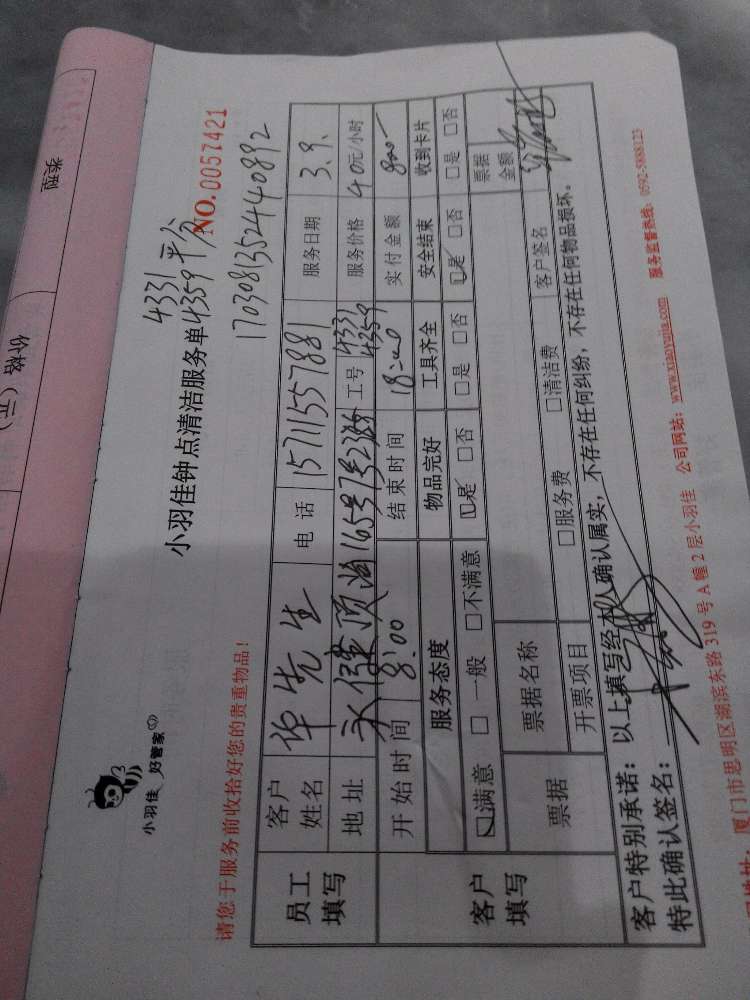 类型
价格（元）
小羽佳 好管家
小羽佳钟点清洁服务单
4331
4359 平谷
NO.0057421
1703081352440892
请您于服务前收拾好您的贵重物品！
员工填写
客户姓名 华先生 电话 15711557881 服务日期 3.9.
地址 165号 工号 4331 4359 服务价格 40元/小时
开始时间 8:00 结束时间 18:00 实付金额 800-
客户填写
服务态度 物品完好 工具齐全 安全结束 收到卡片
☑满意 □一般 □不满意 ☑是 □否 □是 □否 ☑是 □否 □是 □否
票据 票据名称 票据金额
开票项目 □服务费 □清洁费 客户签名
客户特别承诺：以上填写经本人确认属实，不存在任何纠纷，不存在任何物品损坏。
特此确认签名：
厦门市思明区湖滨东路 319 号 A 幢 2 层小羽佳 公司网站：www.xiaoyujia.com 服务监督热线：0592-5888123